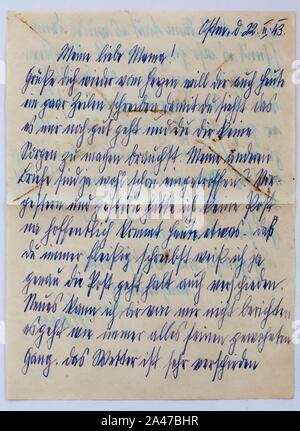 Osten, d. 22. II. 43.
Meine liebe Mama!
Grüße dich wieder von Herzen will dir auch heute
ein paar Zeilen schreiben damit du siehst das
es mir noch gut geht und du dir keine
Sorgen zu machen brauchst. Meine anderen
Briefe sind ja wohl schon eingetroffen. Vor-
gestern und gestern hatte ich keine Post
na hoffentlich kommt heute etwas, daß
du immer fleißig schreibst weiß ich ja
genau die Post geht halt auch verschieden.
Neues kann ich dir von mir nicht berichten
es geht wie immer alles seinen gewohnten
Gang. das Wetter ist sehr verschieden
alamy
Image ID: 2A47BHR
www.alamy.com